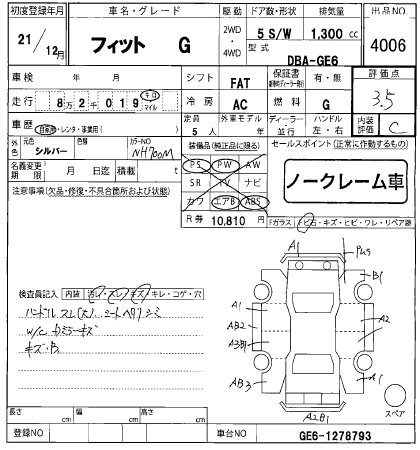 初度登録年月 車名・グレード 駆動 ドア数・形状 排気量 出品NO
21/12月 フィット G 2WD・4WD 5 S/W 1,300 cc 4006
型式 DBA-GE6
車検 年 月 シフト FAT 保証書 有・無 評価点 3.5
走行 8万2千019 キロ マイル 冷房 AC 燃料 G 内装評価 C
車歴 自家用・レンタ・事業用( ) 定員 5人 外車モデル 年 ディーラー・並行 ハンドル 左・右
外装 元色 シルバー 色替 カラーNO NH700M 装備品(純正品に限る) セールスポイント(正常に作動するもの)
名義変更期限 月 日迄 積載 t PS PW AW
注意事項(欠品・修復・不具合箇所および状態) SR TV ナビ
カワ エアB ABS
ノークレーム車
R券 10,810 円 Fガラス トビ石・キズ・ヒビ・ワレ・リペア跡
検査員記入 内装 汚レ・スレ・キズ・キレ・コゲ・穴
ハンドルスレ(大) シートヘタリ シミ
キズ・B
A1
B1
A1
AB2
A2
A3B1
AB3
A1
A2B1
スペア
長さ cm 幅 cm 高さ cm
登録NO 車台NO GE6-1278793